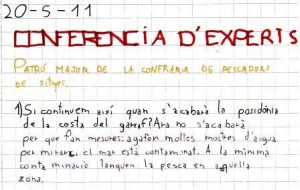 20-5-11
CONFERENCIA D'EXPERTS
PATRÓ MAJOR DE LA CONFRARIA DE PESCADORS
DE sitges.
1) Si continuem així quan s'acabarà la posidònia
de la costa del garraf? Ara no s'acabarà
per que fan mesures: agafen moltes mostres d'aigua
per mirar si el mar està contaminat. A la minima
contaminació tanquen la pesca en aquella
zona.